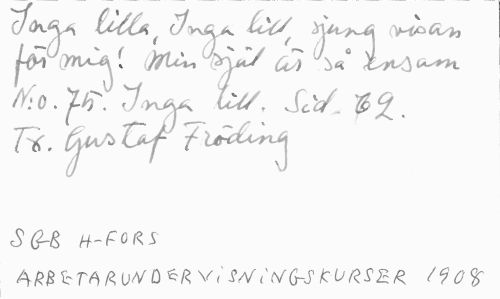 Inga lilla, Inga lill, sjung visan
för mig! Min själ är så ensam
N:o. 75. Inga lill. Sid. 62.
Tx. Gustaf Fröding
SGB H-FORS
ARBETARUNDERVISNINGSKURSER 1908